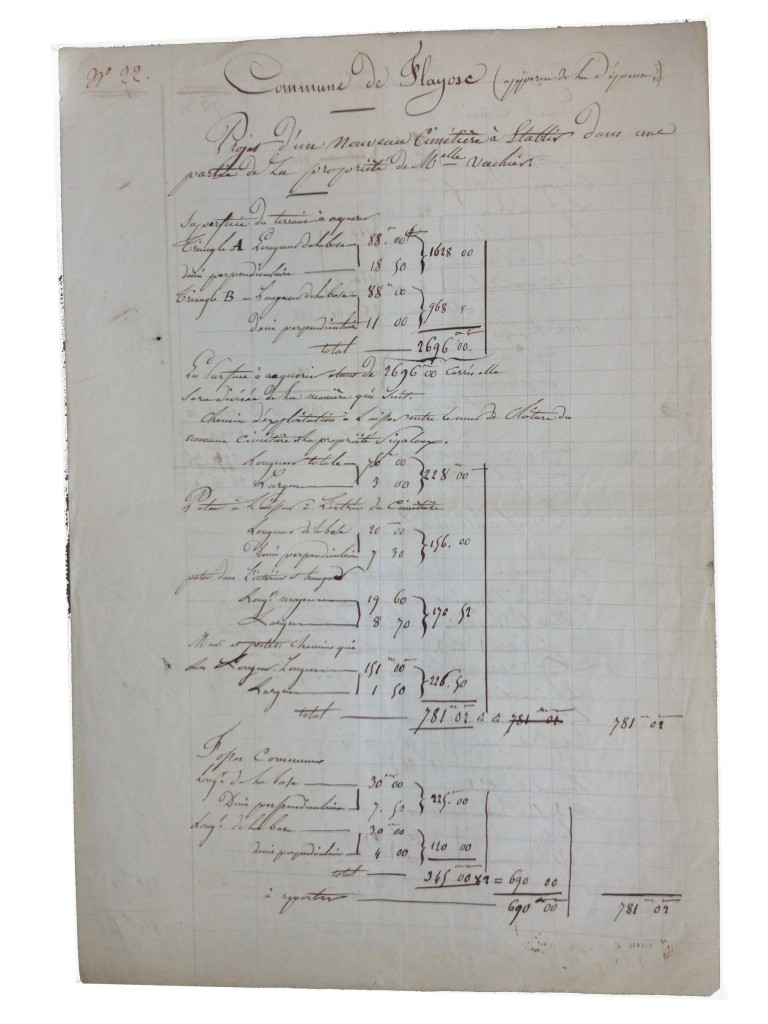 N° 22.
Commune de Flayosc
Projet d'un nouveau Cimetière à Etablir dans une
partie de la propriété de Melle Vachier.
Superficie du terrain à aquerir
Triangle A Longueur de la base 88 m 00 } 1628 00
demi perpendiculaire 18 50
Triangle B - Longueur de la base 88 m 00 } 968 "
Demi perpendiculaire 11 00
total 2696 m 00
La Surface à aquerir étant de 2696 m 00 carrés elle
Sera divisée de la manière qui Suit.
Chemin d'exploitation à Laisser entre le mur de Clôture du
nouveau Cimetière et la propriété Sigaloux.
Longueur totale 76 m 00 } 228 m 00
Largeur 3 00
à Laisser à L'entrée du Cimetière
Longueur de la base 20 m 00 } 156. 00
Demi perpendiculaire 7 30
Longr moyenne 19 60 } 170 52
Largeur 8 70
Murs et petits chemins qui
les Longueur 151 m 00 } 226. 50
Largeur 1 50
total 781 m 02 781 m 02 781 m 02
Fosses Communes
Longr de la base 30 m 00 } 225 m 00
Demi perpendiculaire 7. 50
Longr de la base 30 m 00 } 120 00
demi perpendiculaire 4 00
total 345 00 x 2 = 690 00
à reporter 690 m 00 781 m 02